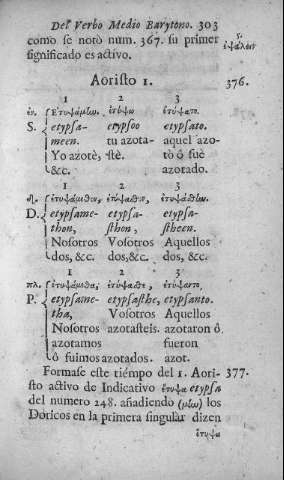 Del Verbo Medio Barytono. 303
como se notò num. 367. su primer
significado es activo.
Aoristo 1. 376.
1 2 3
ἑν. ἐτυψάμην, ἐτύψω ἐτύψατο.
S. etypsa- etypsoo etypsato.
meen. tu azota- aquel azo-
Yo azotè, ste. tò ò fuè
&c. azotado.
1 2 3
δ. ἐτυψάμεθον, ἐτύψασθον, ἐτυψάσθην.
D. etypsame- etypsa- etypsa-
thon, sthon, stheen.
Nosotros Vosotros Aquellos
dos, &c. dos, &c. dos, &c.
1 2 3
πλ. ἐτυψάμεθα, ἐτύψασθε, ἐτύψαντο,
P. etypsame- etypsasthe, etypsanto.
tha, Vosotros Aquellos
Nosotros azotasteis. azotaron ò
azotamos fueron
ò fuimos azotados. azot.
Formase este tiempo del 1. Aori- 377.
sto activo de Indicativo ἔτυψα etypsa
del numero 248. añadiendo (μην) los
Doricos en la primera singular dizen
ἐτυψω